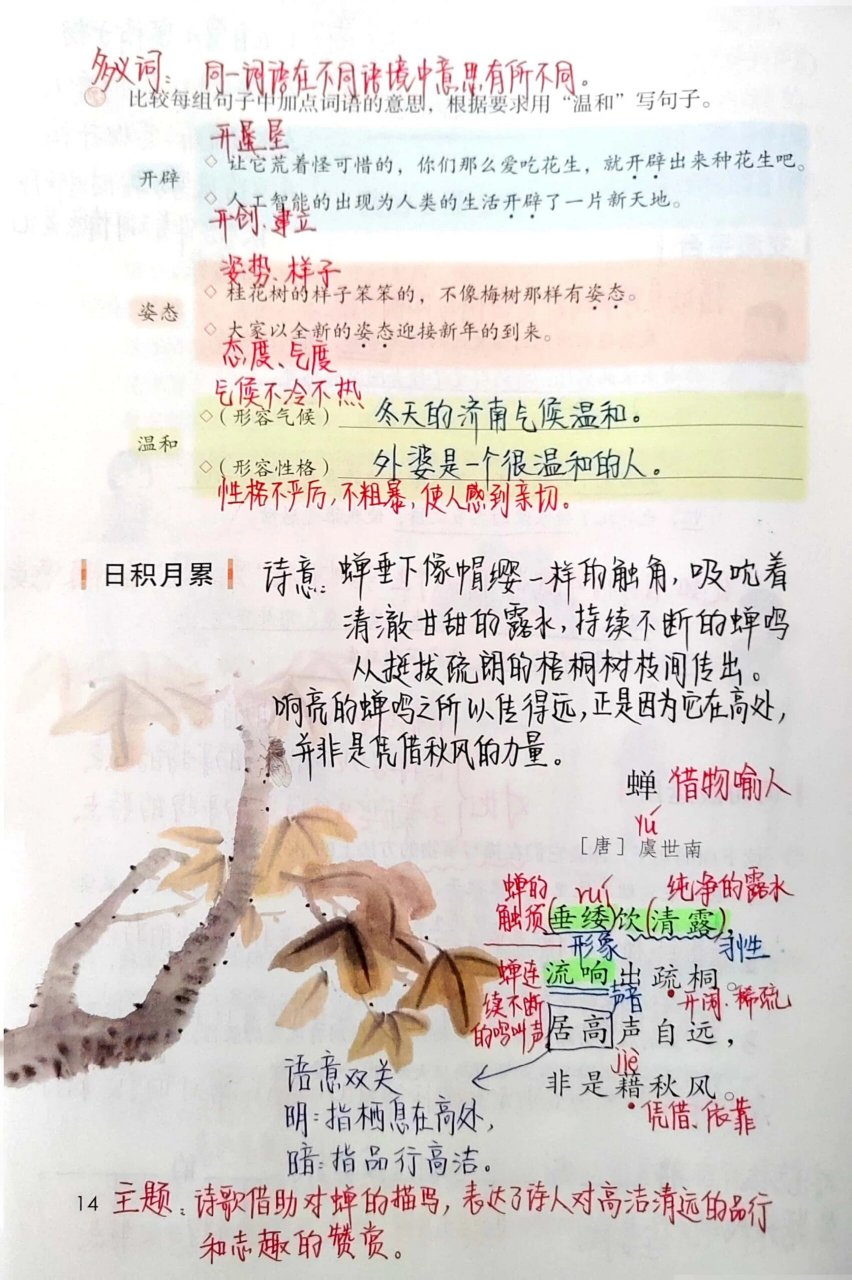 多义词：同一词语在不同语境中意思有所不同。
比较每组句子中加点词语的意思，根据要求用“温和”写句子。
开垦
开辟
◇ 让它荒着怪可惜的，你们那么爱吃花生，就开辟出来种花生吧。
◇ 人工智能的出现为人类的生活开辟了一片新天地。
开创、建立
姿势、样子
姿态
◇ 桂花树的样子笨笨的，不像梅树那样有姿态。
◇ 大家以全新的姿态迎接新年的到来。
态度、气度
气候不冷不热
温和
◇（形容气候）冬天的济南气候温和。
◇（形容性格）外婆是一个很温和的人。
性格不严厉，不粗暴，使人感到亲切。
日积月累
诗意：蝉垂下像帽缨一样的触角，吸吮着
清澈甘甜的露水，持续不断的蝉鸣
从挺拔疏朗的梧桐树枝间传出。
响亮的蝉鸣之所以传得远，正是因为它在高处，
并非是凭借秋风的力量。
蝉 借物喻人
yú
［唐］虞世南
蝉的
触须
ruí
纯净的露水
垂緌饮清露，
形象
习性
蝉连
续不断
的鸣叫声
流响出疏桐。
声音
开阔、稀疏
居高声自远，
jiè
非是藉秋风。
凭借、依靠
语意双关
明：指栖息在高处，
暗：指品行高洁。
14
主题：诗歌借助对蝉的描写，表达了诗人对高洁清远的品行
和志趣的赞赏。